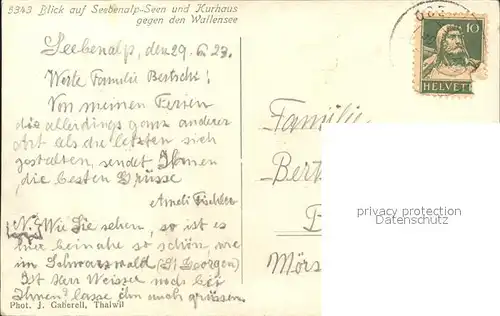 5343 Blick auf Seebenalp-Seen und Kurhaus
gegen den Wallensee
Seebenalp, den 29. 6. 23.
Werte Familie Bertschi!
Von meinen Ferien
die allerdings ganz anderer
Art als die letzten sich
gestalten, sendet Ihnen
die besten Grüsse
Ameli Fischler
N. Wie Sie sehen, so ist es
hier beinahe so schön, wie
im Schwarzwald (St. Georgen)
Ist Herr Weisser noch bei
Ihnen? lasse ihn auch grüssen.
Phot. J. Gaberell, Thalwil
10
HELVETI
Familie
Bert
Mörs
privacy protection
www.oldthing.com